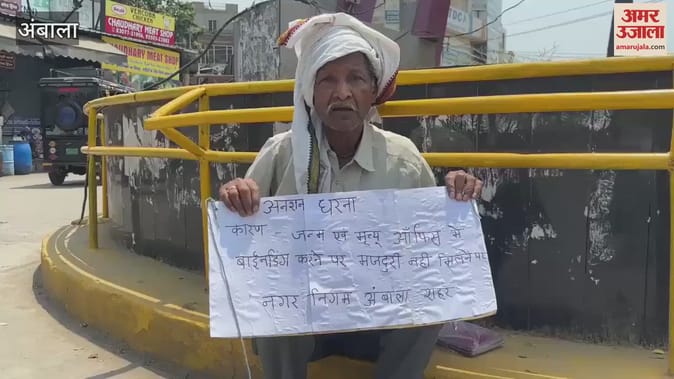 अंबाला
अमर उजाला
amarujala.com
CHAUDHARY MEAT SHOP
MEAT SHOP
अनशन धरना
कारण - जन्म एवं मृत्यू ऑफिस में
बाईनडिंग करने पर मजदुरी नही मिलने पर
नगर निगम अंबाला शहर